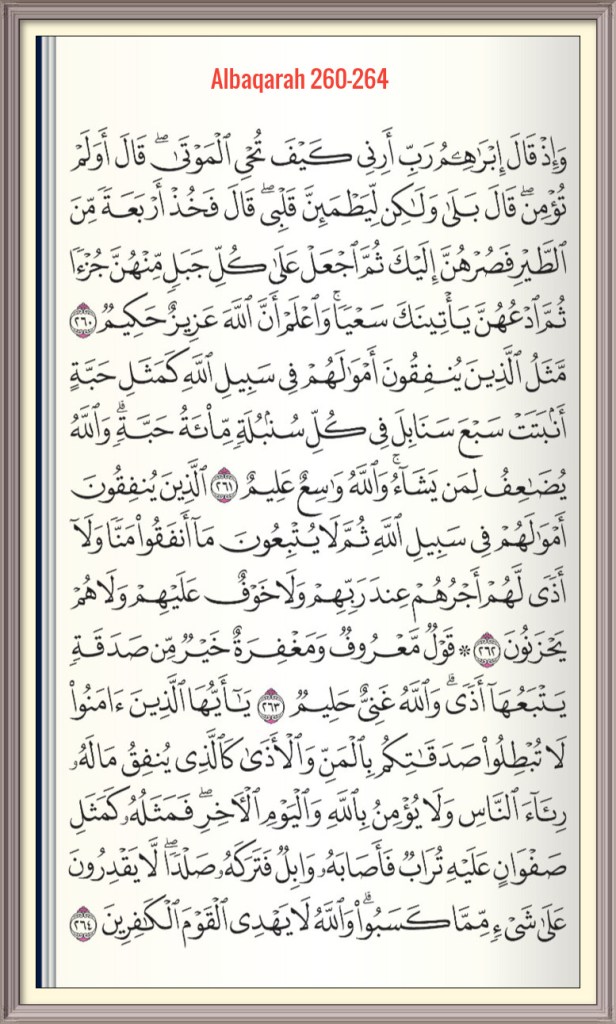 Albaqarah 260-264
وَإِذْ قَالَ إِبْرَٰهِـۧمُ رَبِّ أَرِنِى كَيْفَ تُحْىِ ٱلْمَوْتَىٰ ۖ قَالَ أَوَلَمْ
تُؤْمِن ۖ قَالَ بَلَىٰ وَلَـٰكِن لِّيَطْمَئِنَّ قَلْبِى ۖ قَالَ فَخُذْ أَرْبَعَةً مِّنَ
ٱلطَّيْرِ فَصُرْهُنَّ إِلَيْكَ ثُمَّ ٱجْعَلْ عَلَىٰ كُلِّ جَبَلٍ مِّنْهُنَّ جُزْءًا
ثُمَّ ٱدْعُهُنَّ يَأْتِينَكَ سَعْيًا ۚ وَٱعْلَمْ أَنَّ ٱللَّهَ عَزِيزٌ حَكِيمٌ ٢٦٠
مَّثَلُ ٱلَّذِينَ يُنفِقُونَ أَمْوَٰلَهُمْ فِى سَبِيلِ ٱللَّهِ كَمَثَلِ حَبَّةٍ
أَنۢبَتَتْ سَبْعَ سَنَابِلَ فِى كُلِّ سُنۢبُلَةٍ مِّا۟ئَةُ حَبَّةٍ ۗ وَٱللَّهُ
يُضَـٰعِفُ لِمَن يَشَآءُ ۗ وَٱللَّهُ وَٰسِعٌ عَلِيمٌ ٢٦١ ٱلَّذِينَ يُنفِقُونَ
أَمْوَٰلَهُمْ فِى سَبِيلِ ٱللَّهِ ثُمَّ لَا يُتْبِعُونَ مَآ أَنفَقُوا۟ مَنًّا وَلَآ
أَذًى لَّهُمْ أَجْرُهُمْ عِندَ رَبِّهِمْ وَلَا خَوْفٌ عَلَيْهِمْ وَلَا هُمْ
يَحْزَنُونَ ٢٦٢ ۞ قَوْلٌ مَّعْرُوفٌ وَمَغْفِرَةٌ خَيْرٌ مِّن صَدَقَةٍ
يَتْبَعُهَآ أَذًى ۗ وَٱللَّهُ غَنِىٌّ حَلِيمٌ ٢٦٣ يَـٰٓأَيُّهَا ٱلَّذِينَ ءَامَنُوا۟
لَا تُبْطِلُوا۟ صَدَقَـٰتِكُم بِٱلْمَنِّ وَٱلْأَذَىٰ كَٱلَّذِى يُنفِقُ مَالَهُۥ
رِئَآءَ ٱلنَّاسِ وَلَا يُؤْمِنُ بِٱللَّهِ وَٱلْيَوْمِ ٱلْـَٔاخِرِ ۖ فَمَثَلُهُۥ كَمَثَلِ
صَفْوَانٍ عَلَيْهِ تُرَابٌ فَأَصَابَهُۥ وَابِلٌ فَتَرَكَهُۥ صَلْدًا ۖ لَّا يَقْدِرُونَ
عَلَىٰ شَىْءٍ مِّمَّا كَسَبُوا۟ ۗ وَٱللَّهُ لَا يَهْدِى ٱلْقَوْمَ ٱلْكَـٰفِرِينَ ٢٦٤